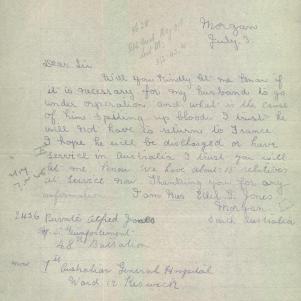 Morgan
July 3
Dear Sir
Will you kindly let me know if
it is necessary for my husband to go
under operation and what is the cause
of him spitting up blood I trust he
will not have to return to France
I hope he will be discharged or have
service in Australia I trust you will
let me know We have about 15 relatives
at service now Thanking you for any
information I am Mrs Jones
Morgan
South Australia
2436 Private Alfred Jones
Reinforcement
48th Battalion
now 7th Australian General Hospital
Ward 12 Keswick